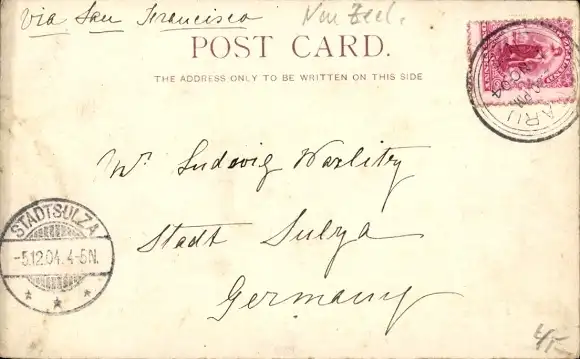 via San Francisco
POST CARD.
THE ADDRESS ONLY TO BE WRITTEN ON THIS SIDE
NO 04
PM
ARU
Mr Ludwig
Stadt Sulza
Germany
STADTSULZA
-5.12.04. 4-5N.
4/-